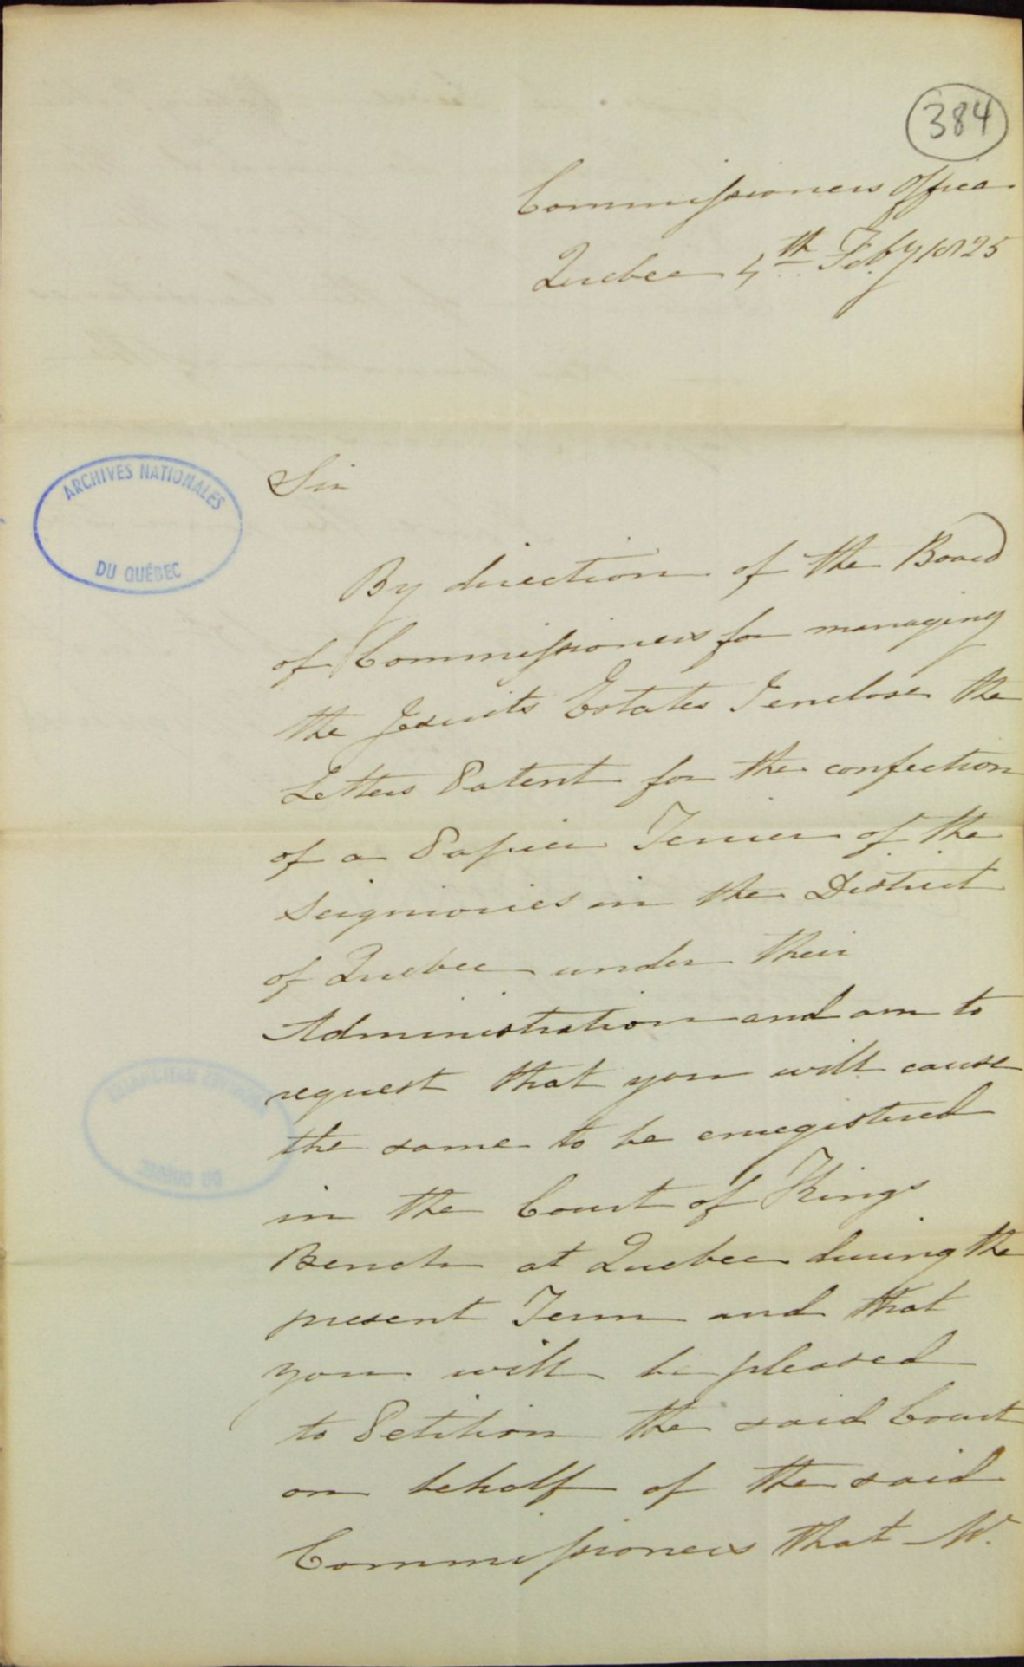 384
Commissioners Office
Quebec 4th Feby 1825
ARCHIVES NATIONALES
DU QUÉBEC
Sir
By direction of the Board
of Commissioners for managing
the Jesuits Estates I enclose the
Letters Patent for the confection
of a Papier Terrier of the
Seigniories in the District
of Quebec under their
Administration and am to
request that you will cause
the same to be enregistered
in the Court of Kings
Bench at Quebec during the
present Term and that
you will be pleased
to Petition the said Court
on behalf of the said
Commissioners that Mr.